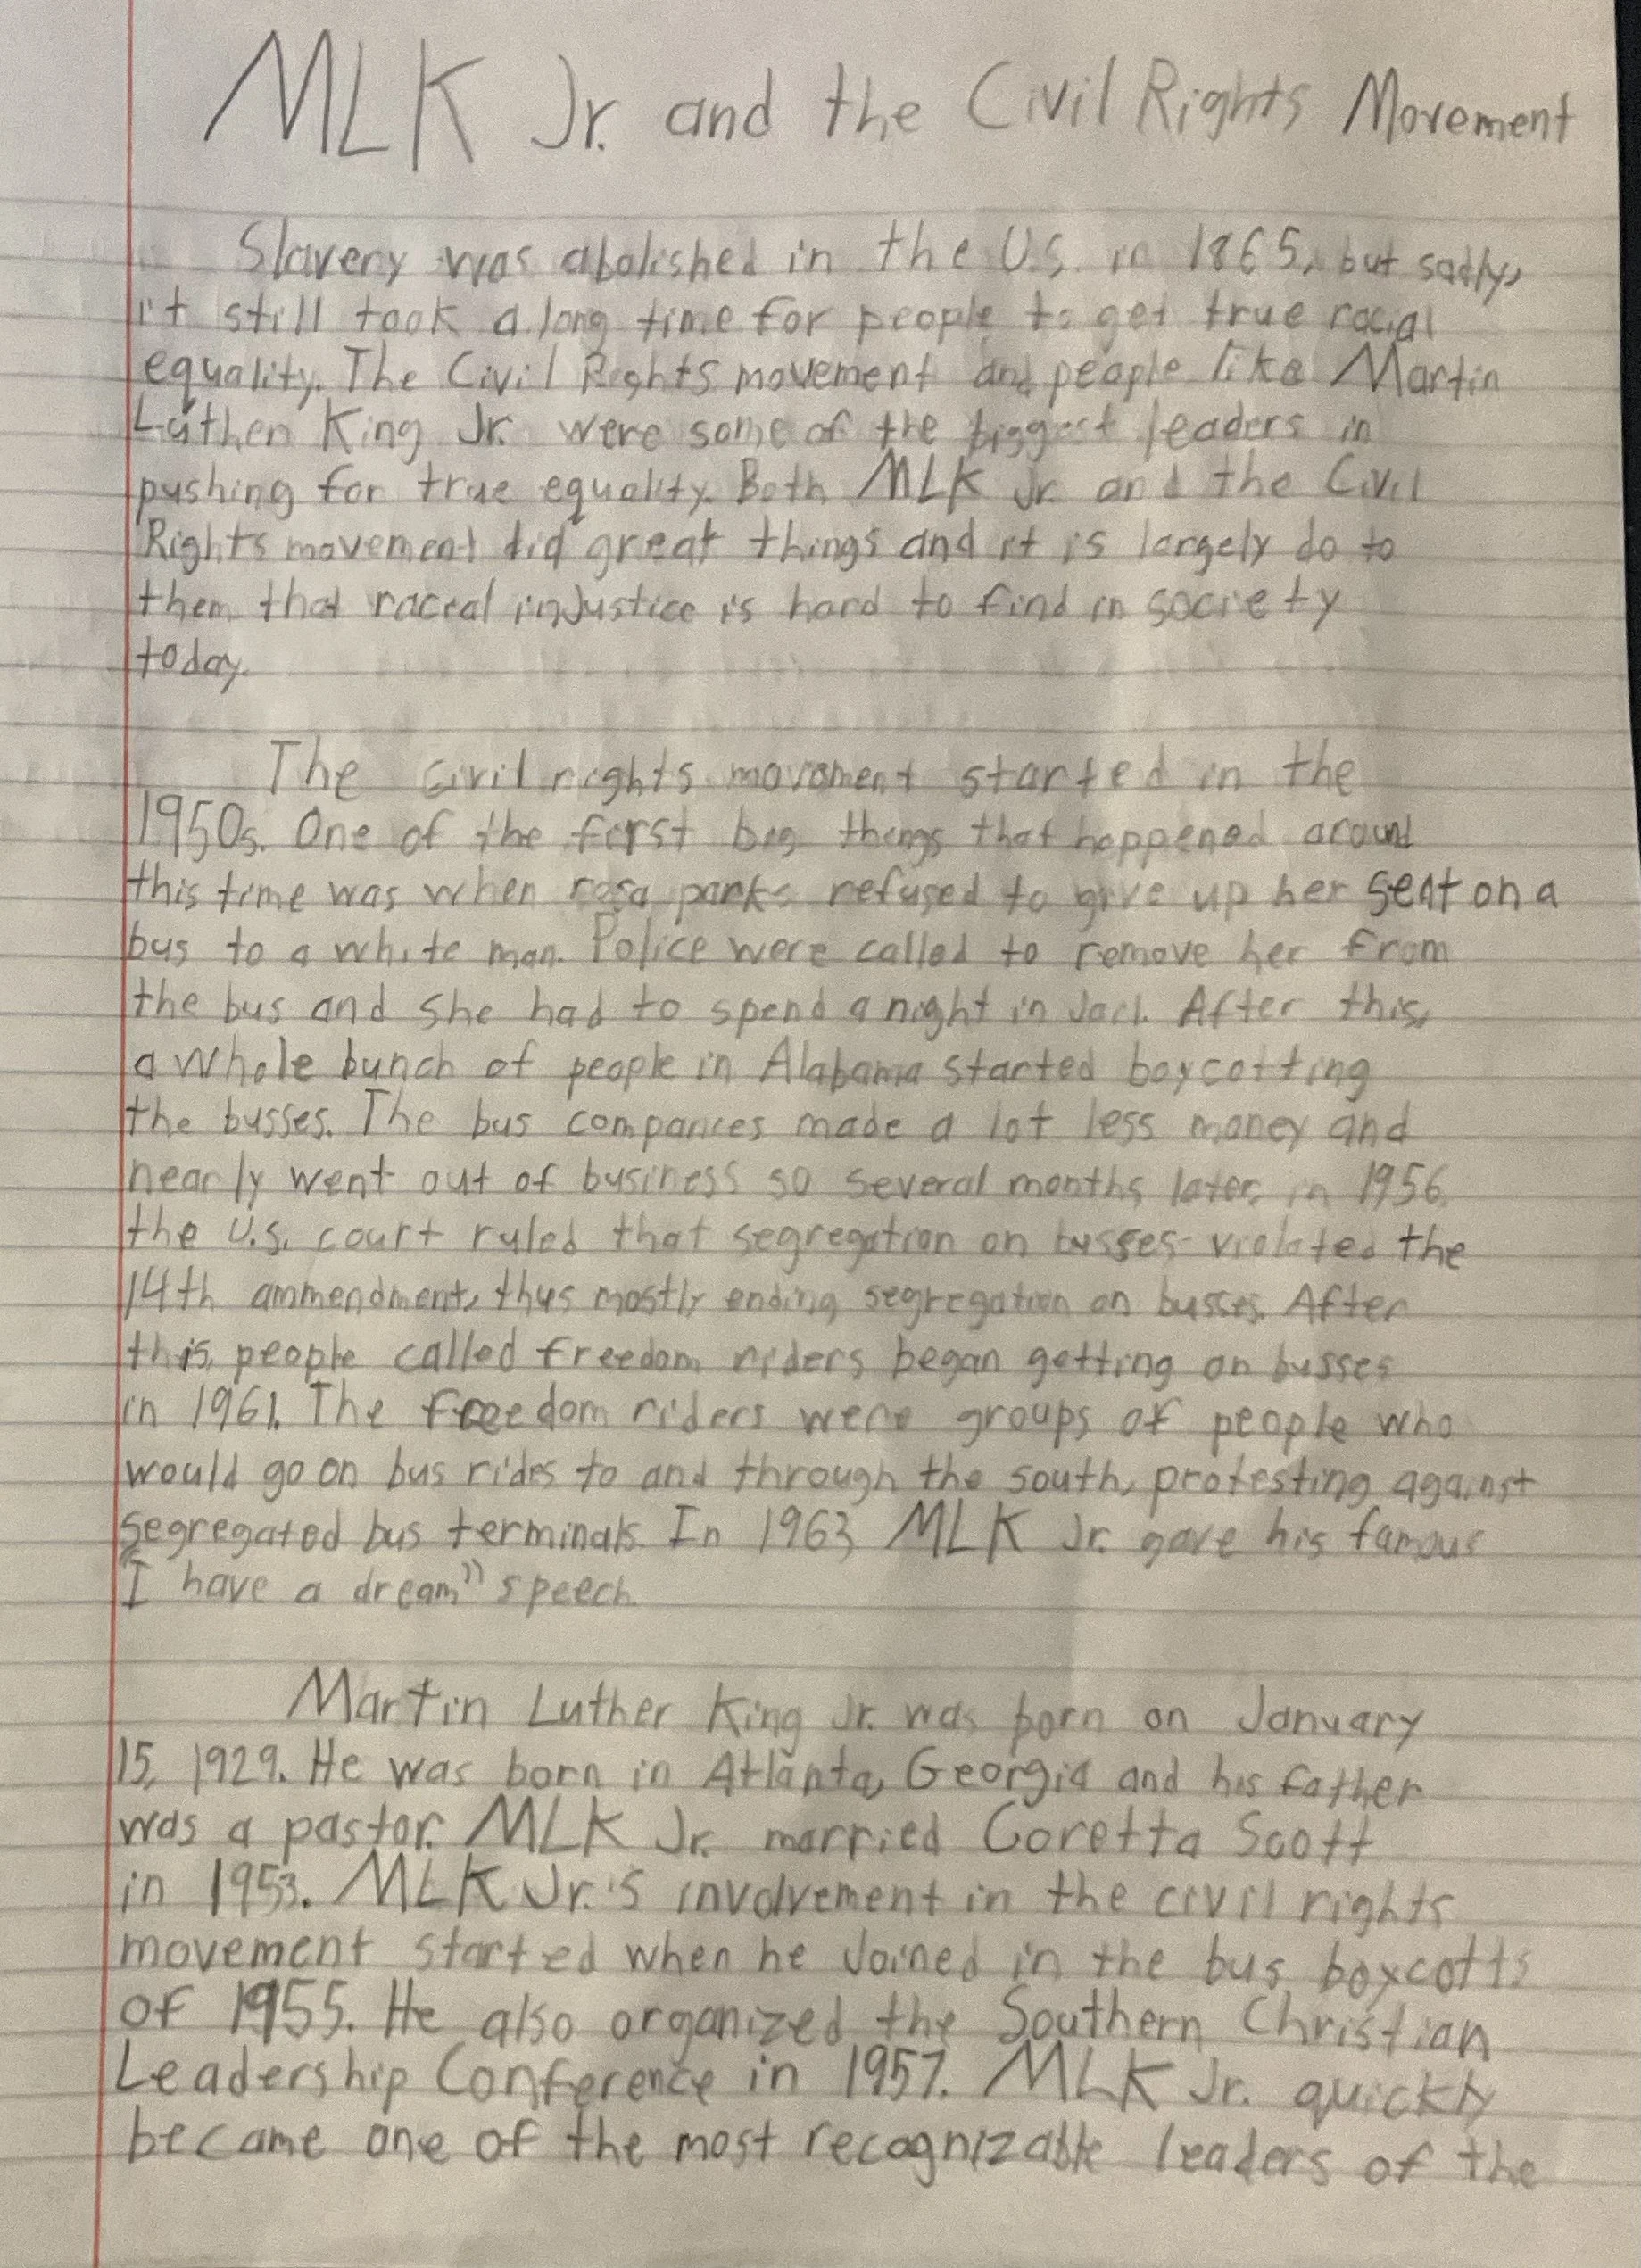 MLK Jr. and the Civil Rights Movement
Slavery was abolished in the U.S. in 1865, but sadly,
it still took a long time for people to get true racial
equality. The Civil Rights movement and people like Martin
Luther King Jr. were some of the biggest leaders in
pushing for true equality. Both MLK Jr. and the Civil
Rights movement did great things and it is largely do to
them that racial injustice is hard to find in society
today.
The civil rights movement started in the
1950s. One of the first big things that happened around
this time was when rosa parks refused to give up her seat on a
bus to a white man. Police were called to remove her from
the bus and she had to spend a night in Jail. After this,
a whole bunch of people in Alabama started boycotting
the busses. The bus companies made a lot less money and
nearly went out of business so several months later, in 1956,
the U.S. court ruled that segregation on busses violated the
14th ammendment, thus mostly ending segregation on busses. After
this, people called freedom riders began getting on busses
in 1961. The freedom riders were groups of people who
would go on bus rides to and through the south, protesting against
segregated bus terminals. In 1963, MLK Jr. gave his famous
"I have a dream" speech.
Martin Luther King Jr. was born on January
15, 1929. He was born in Atlanta, Georgia and his father
was a pastor. MLK Jr. married Coretta Scott
in 1953. MLK Jr.'s involvement in the civil rights
movement started when he Joined in the bus boycotts
of 1955. He also organized the Southern Christian
Leadership Conference in 1957. MLK Jr. quickly
became one of the most recognizable leaders of the